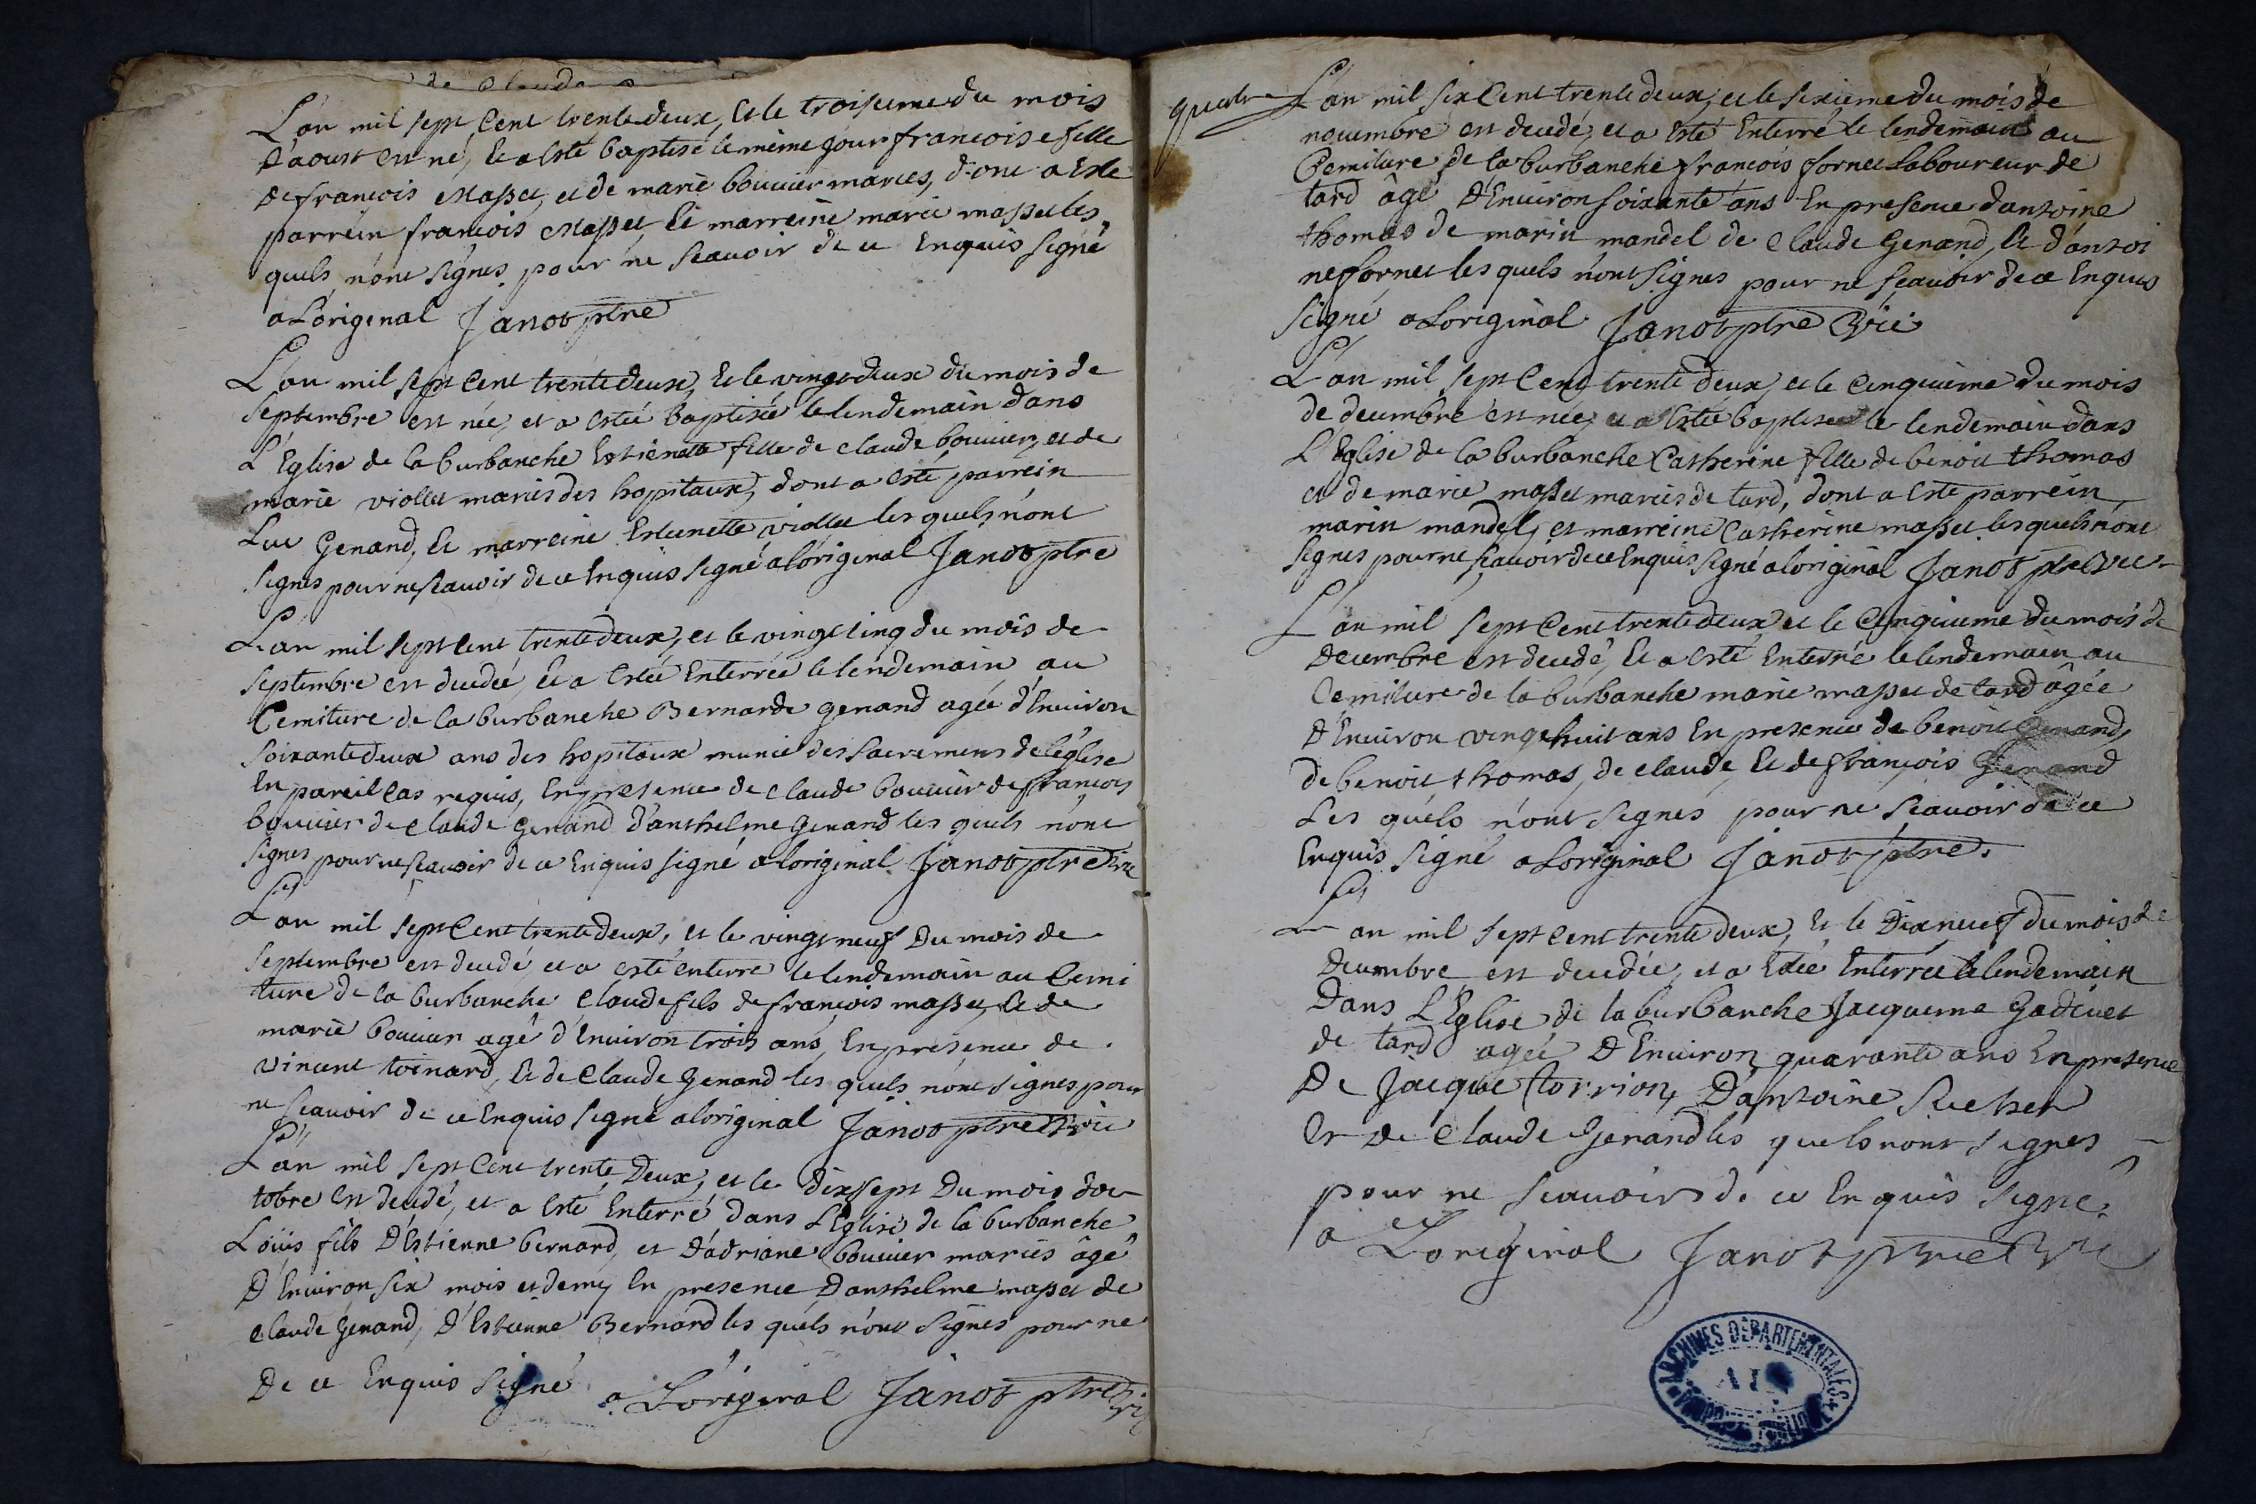 L'an mil sept Cent trente deux, Et le troisieme du mois
D'aoust est né, Et a esté baptisé le même jour francoise fille
De françois Masset, et de marie bouvier maries, dont a Este
parrein francois Masset Et marreine marie masset les
quels n'ont signes pour ne scavoir de ce Enquis signé
a L'original Janot ptre
L'an mil sept Cent trente deux, Et le vingt deux du mois de
Septembre est née, et a estée baptisée le lendemain dans
L'Eglise de la burbanche Estienette fille de claude bouvier, et de
marie viollet maries des hopitaux, dont a esté parrein
Luc Genand, Et marreine Estienette viollet les quels n'ont
signes pour ne scavoir de ce Enquis signé a loriginal Janot ptre
L'an mil sept Cent trente deux, et le vingt cinq du mois de
Septembre est decedée, Et a Estée Enterrée le lendemain au
Cemitiere de la burbanche Bernarde genand agée d'Environ
soixante deux ans des hopitaux munie des sacremens de l'eglise
En pareil cas requis, En presence de claude bouvier de francois
bouvier de claude Genand d'anthelme Genand les quels n'ont
signes pour ne scavoir de ce Enquis signé a loriginal Janot ptre Vic
L'an mil sept Cent trente deux, et le vingt neuf Du mois de
Septembre est decedé et a esté enterré le lendemain au Cemi
tiere de la burbanche Claude fils de françois masset, Et de
marie bouvier agé d'Environ trois ans, En presence de
vincent toinard, Et de Claude Genand les quels n'ont signes pour
ne scavoir de ce Enquis signé a loriginal Janot ptre Vic
L'an mil sept Cent trente Deux, et le dixsept Du mois doc
tobre est decedé, et a Esté Enterré dans L'Eglise de la burbanche
Loüis fils D'Estienne bernard, et D'adriane bouvier maries âgé
D'Environ six mois et demy En presence D'anthelme masset de
claude Genand, D'Estienne Bernard les quels n'ont Signes pour ne
De ce Enquis signé a L'original Janot ptre Vic
quatre
L'an mil six Cent trente deux, et le sixieme du mois de
novembre est decedé, et a Esté Enterré le lendemain au
Cemitiere de la burbanche francois fornet Laboureur de
tard âgé D'Environ soixante ans En presence d'antoine
thomas de marin mandel de Claude Genand, Et d'antoi
ne fornet les quels n'ont signes pour ne scavoir de ce Enquis
signé a Loriginal Janot ptre Vic
L'an mil sept Cent trente deux, et le Cinquieme du mois
de decembre est née, et a Estée baptisee le lendemain dans
L'Eglise de la burbanche Catherine fille de benoit thomas
et de marie masset maries de tard, dont a Este parrein
marin mandel, et marreine Catherine masset les quels n'ont
signes pour ne scavoir de ce Enquis signé a loriginal Janot ptre Vic
L'an mil sept Cent trente deux et le Cinquieme du mois de
Decembre est decedé, Et a esté Enterré le lendemain au
Cemitiere de la burbanche marie masset de tard âgée
D'Environ vingt huit ans En presence de benoit Genand,
de benoit thomas, de claude, Et de françois Genand
Les quels n'ont signes pour ne scavoir de ce
Enquis signé a Loriginal Janot ptre.
L'an mil sept Cent trente deux, Et le Dix neuf du mois de
Decembre est decedée, et a Estée Enterrée le lendemain
Dans L'Eglise de la burbanche Jacqueme Gadivet
de tard agée D'Environ quarante ans En presence
De Jacque torrion, D'antoine Sucher
Et De Claude Genand les quels nont signes
pour ne scavoir de ce Enquis signé
a L'original Janot ptre Vic
ARCHIVES DÉPARTEMENTALES
AIN